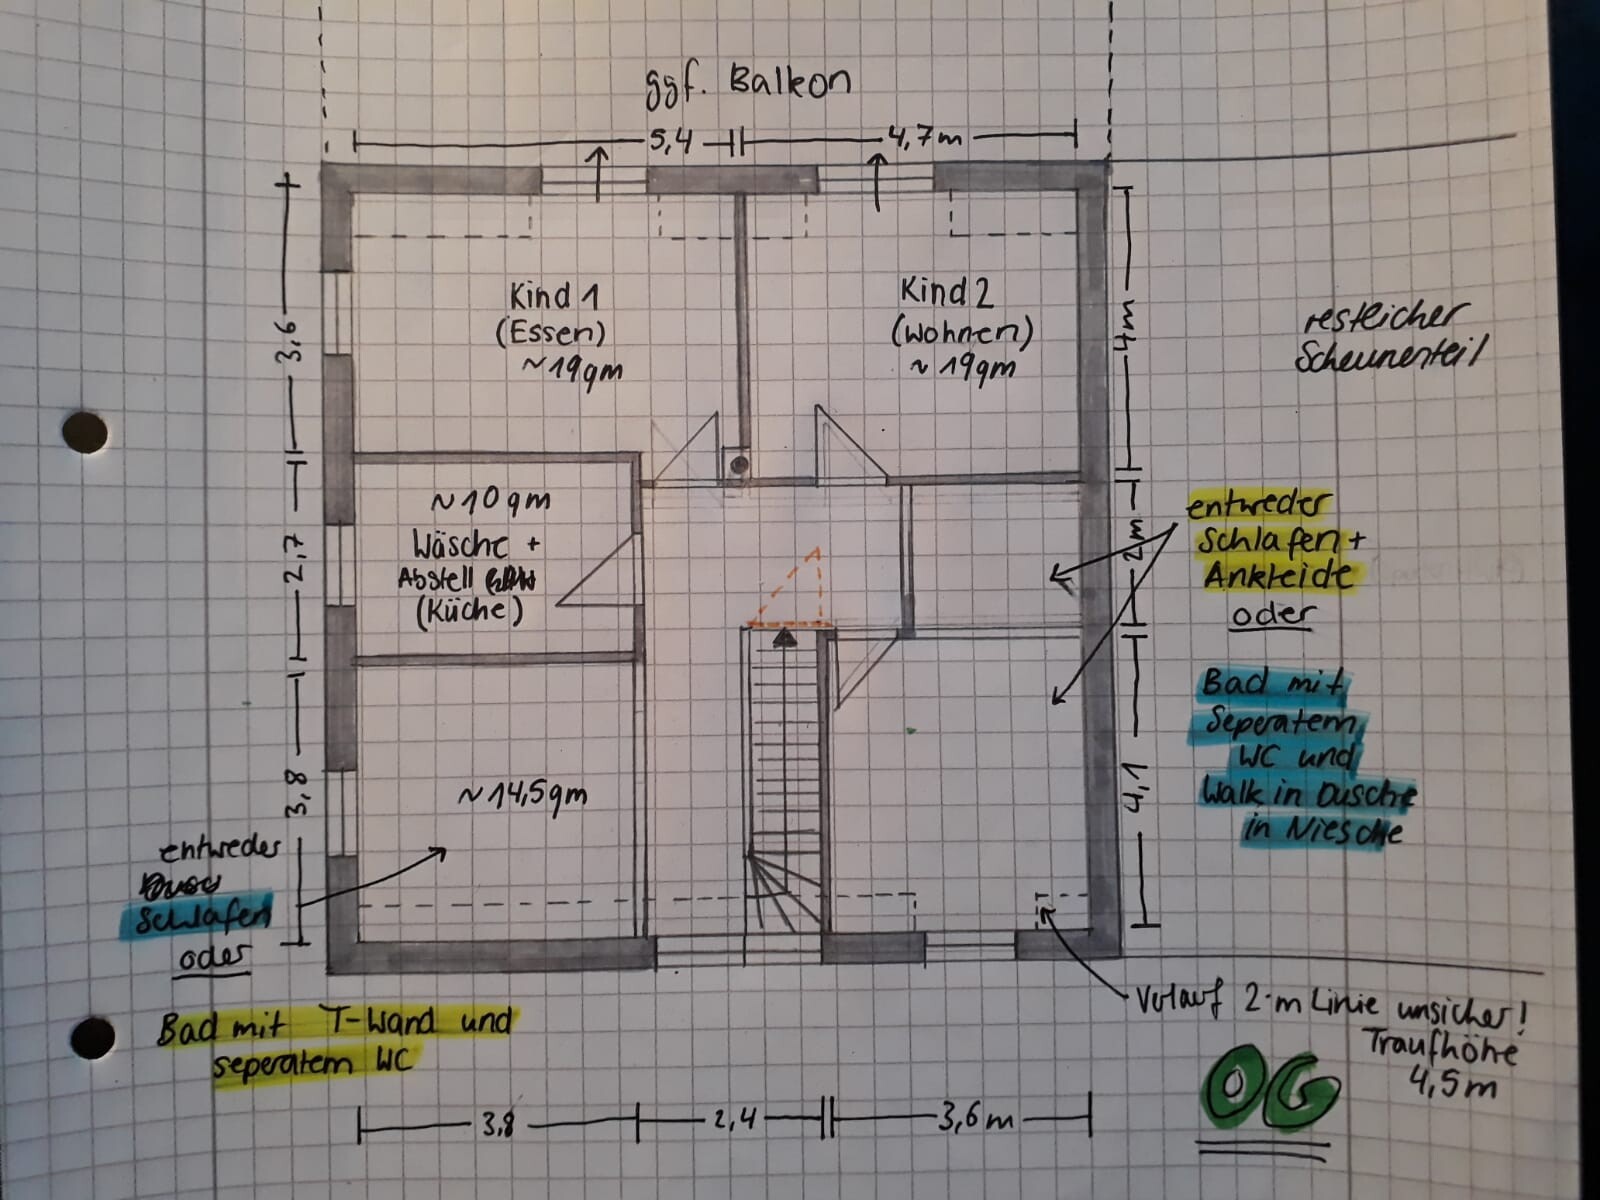 ggf. Balkon
5,4
4,7m
Kind 1
(Essen)
~19qm
Kind 2
(Wohnen)
~19qm
3,6
4m
restlicher
Scheunenteil
~10qm
Wäsche +
Abstell
(Küche)
2,7
2m
entweder
Schlafen +
Ankleide
oder
Bad mit
Seperatem
WC und
Walk in Dusche
in Niesche
3,8
~14,5qm
4,1
entweder
Schlafen
oder
Bad mit T-Wand und
seperatem WC
Verlauf 2-m Linie unsicher!
Traufhöhe
4,5m
OG
3,8
2,4
3,6m